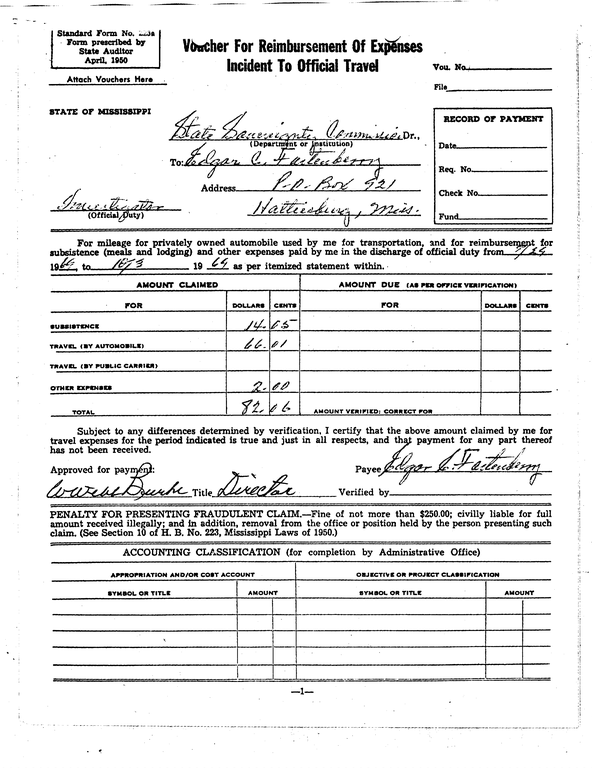 Standard Form No.
Form prescribed by
State Auditor
April, 1950
Attach Vouchers Here
Voucher For Reimbursement Of Expenses
Incident To Official Travel
Vou. No.
File
STATE OF MISSISSIPPI
State Sovereignty Commission Dr.,
(Department or Institution)
To: Edgar C. Fortenberry
Address P.O. Box 521
Hattiesburg, Miss.
Investigator
(Official Duty)
RECORD OF PAYMENT
Date
Req. No.
Check No.
Fund
For mileage for privately owned automobile used by me for transportation, and for reimbursement for
subsistence (meals and lodging) and other expenses paid by me in the discharge of official duty from
19 to 10/3 19 as per itemized statement within.
AMOUNT CLAIMED AMOUNT DUE (AS PER OFFICE VERIFICATION)
FOR DOLLARS CENTS FOR DOLLARS CENTS
SUBSISTENCE 14.05
TRAVEL (BY AUTOMOBILE) 66.01
TRAVEL (BY PUBLIC CARRIER)
OTHER EXPENSES 2.00
TOTAL 82.06 AMOUNT VERIFIED: CORRECT FOR
Subject to any differences determined by verification, I certify that the above amount claimed by me for
travel expenses for the period indicated is true and just in all respects, and that payment for any part thereof
has not been received.
Approved for payment: Payee Edgar C. Fortenberry
Title Director Verified by
PENALTY FOR PRESENTING FRAUDULENT CLAIM.—Fine of not more than $250.00; civilly liable for full
amount received illegally; and in addition, removal from the office or position held by the person presenting such
claim. (See Section 10 of H. B. No. 223, Mississippi Laws of 1950.)
ACCOUNTING CLASSIFICATION (for completion by Administrative Office)
APPROPRIATION AND/OR COST ACCOUNT OBJECTIVE OR PROJECT CLASSIFICATION
SYMBOL OR TITLE AMOUNT SYMBOL OR TITLE AMOUNT
—1—